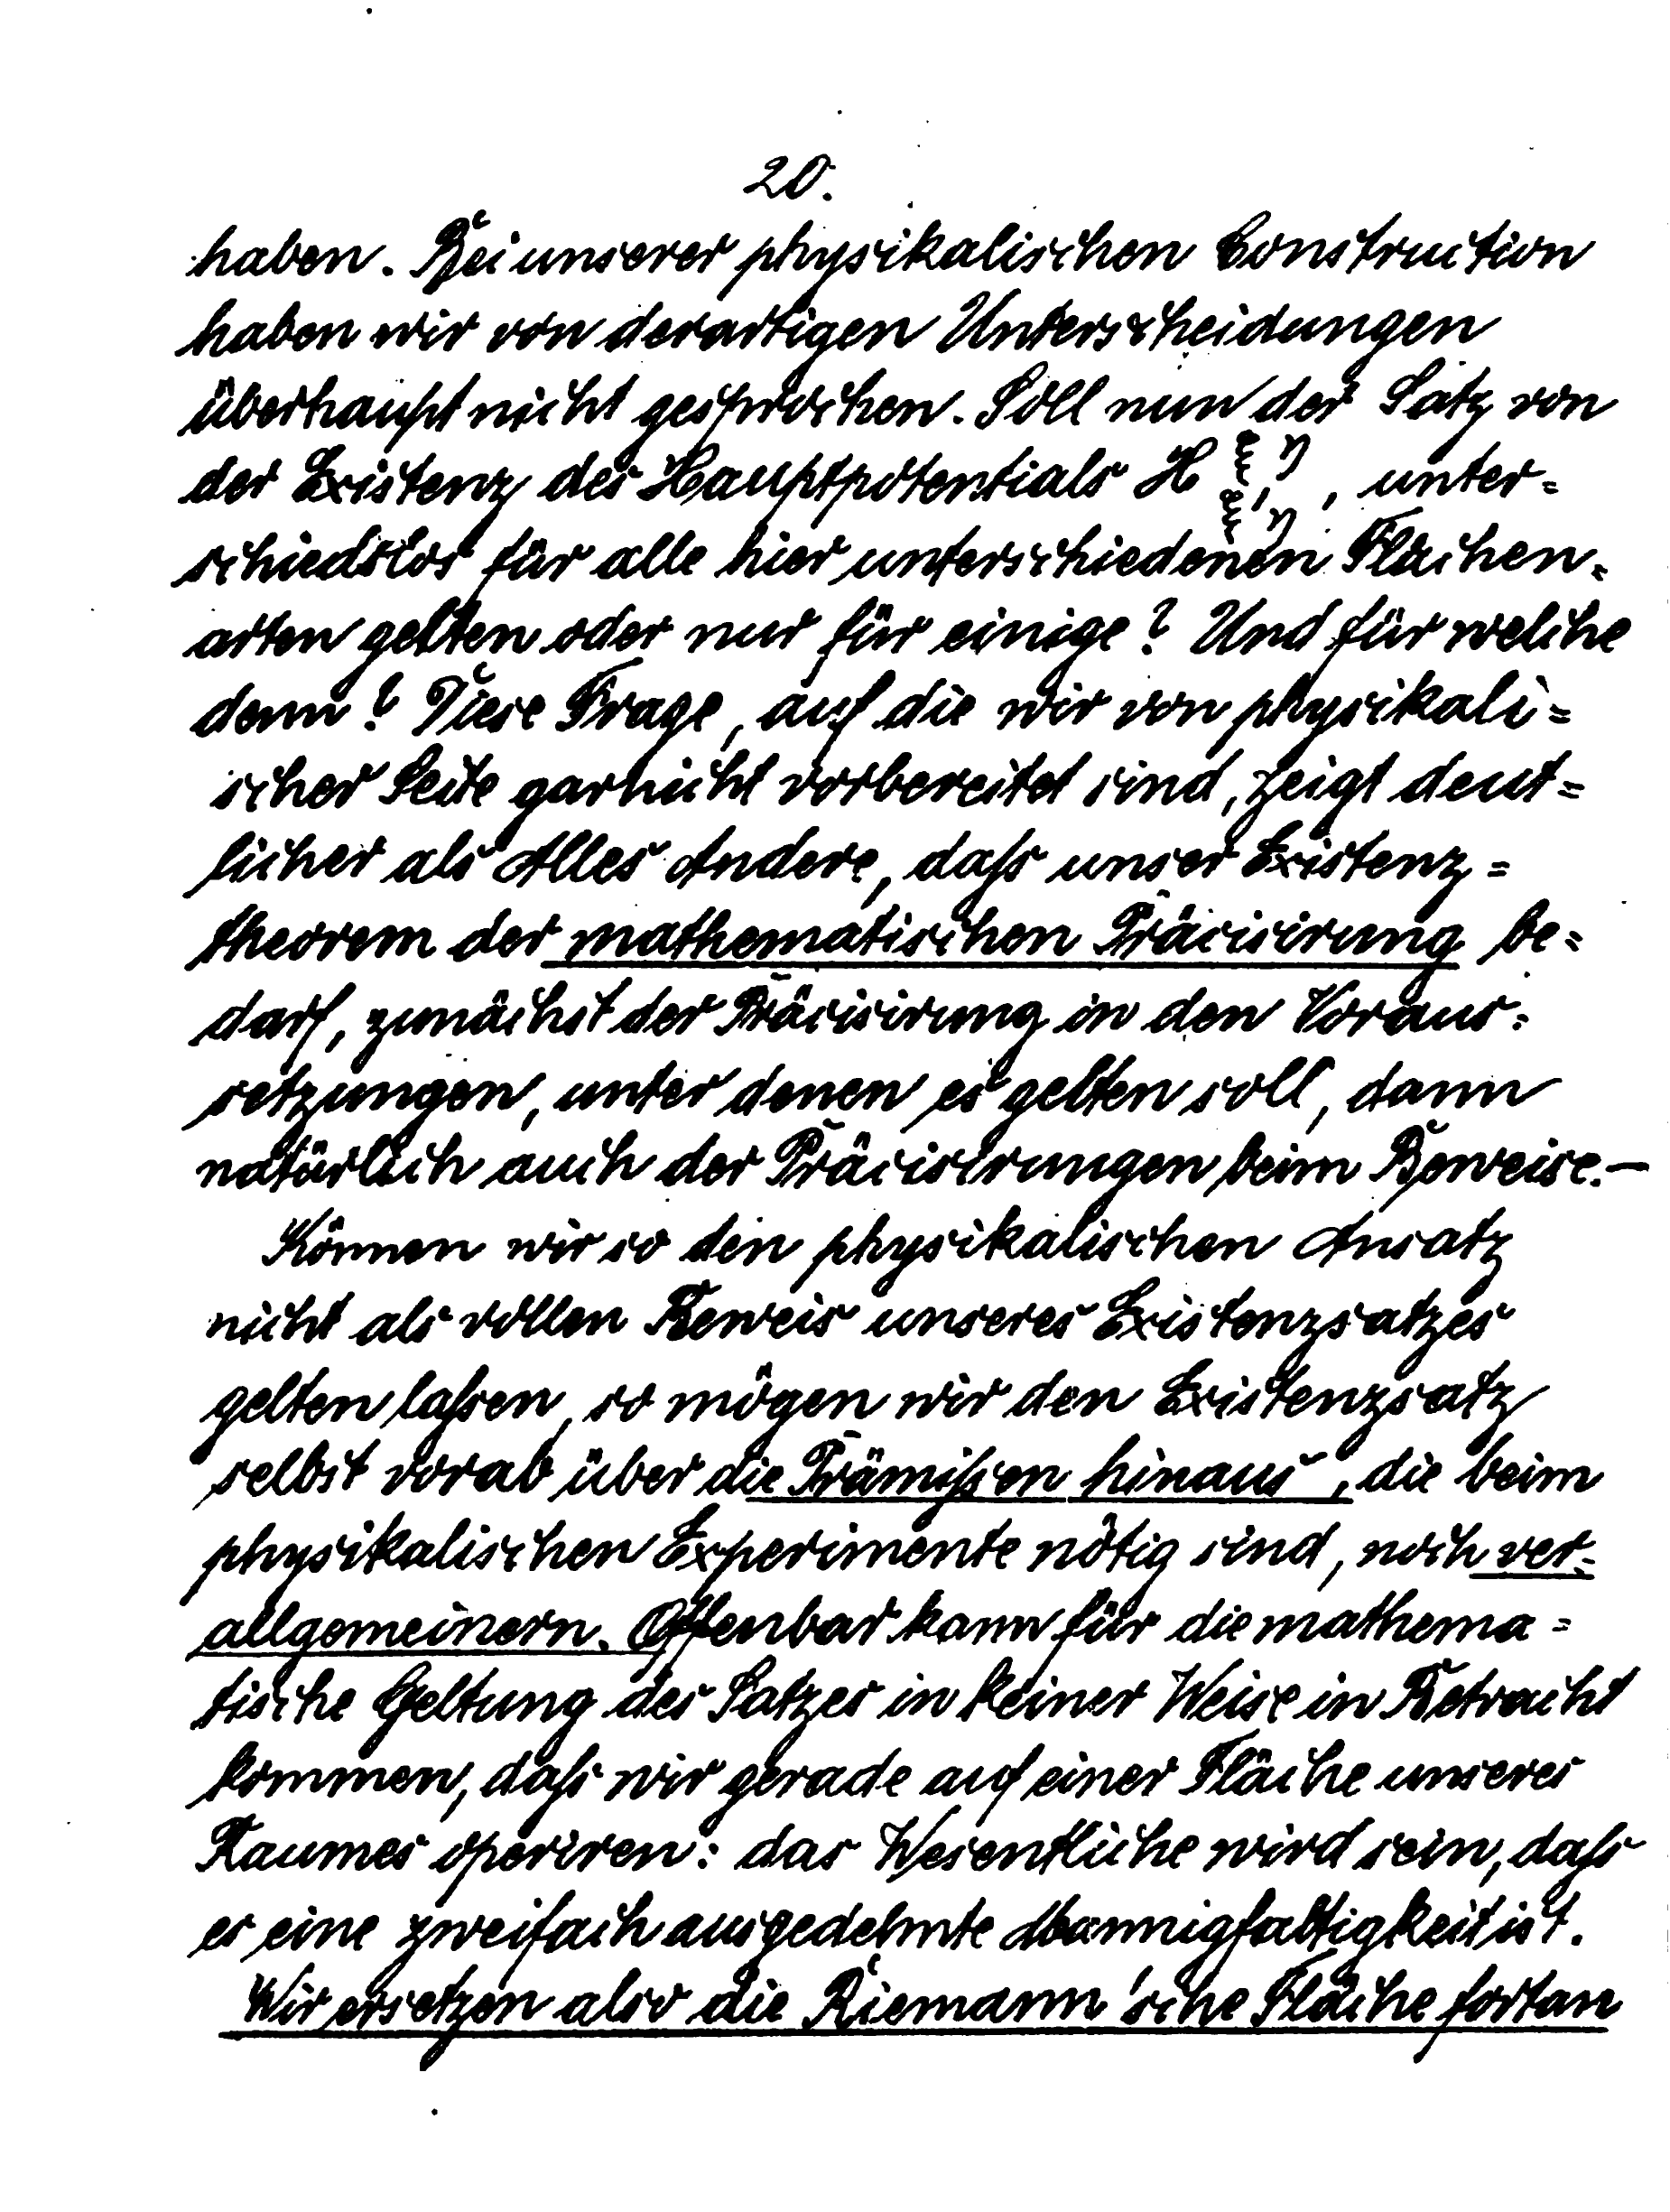 20.
haben. Bei unserer physikalischen Construction
haben wir von derartigen Unterscheidungen
überhaupt nicht gesprochen. Soll nun der Satz von
der Existenz des Hauptpotentials H ξ η ξ' η', unter=
schiedslos für alle hier unterschiedenen Flächen=
arten gelten oder nur für einige? Und für welche
denn? Diese Frage, auf die wir von physikali=
scher Seite garnicht vorbereitet sind, zeigt deut=
licher als Alles Andere, daß unser Existenz=
theorem der mathematischen Präcisirung be=
darf, zunächst der Präcisirung in den Voraus=
setzungen, unter denen es gelten soll, dann
natürlich auch der Präcisirungen beim Beweise.—
Können wir so den physikalischen Ansatz
nicht als vollen Beweis unseres Existenzsatzes
gelten laßen, so mögen wir den Existenzsatz
selbst vorab über die Prämißen hinaus, die beim
physikalischen Experimente nötig sind, noch ver=
allgemeinern. Offenbar kann für die mathema=
tische Geltung des Satzes in keiner Weise in Betracht
kommen, daß wir gerade auf einer Fläche unseres
Raumes operiren: das Wesentliche wird sein, daß
es eine zweifach ausgedehnte Mannigfaltigkeit ist.
Wir ersetzen also die Riemann'sche Fläche fortan